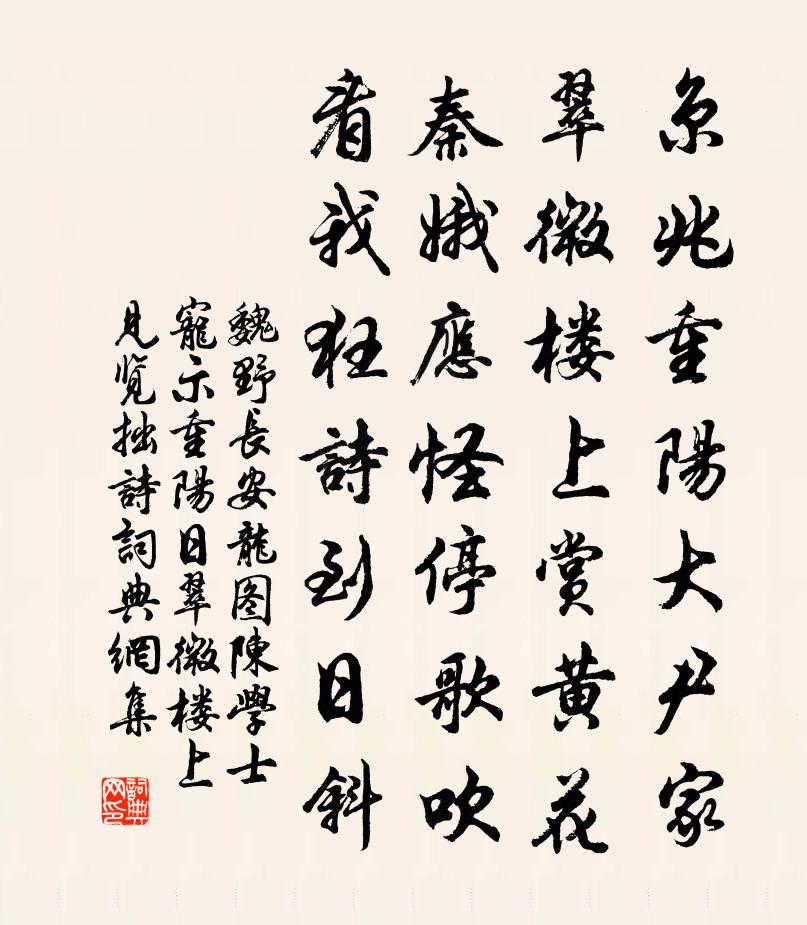 京兆重陽大尹家
翠微楼上赏黄花
秦娥應怪停歌吹
看我狂詩到日斜
魏野長安龍图陳學士
寵示重陽日翠微楼上
見览拙詩詞典網集
詞典网印